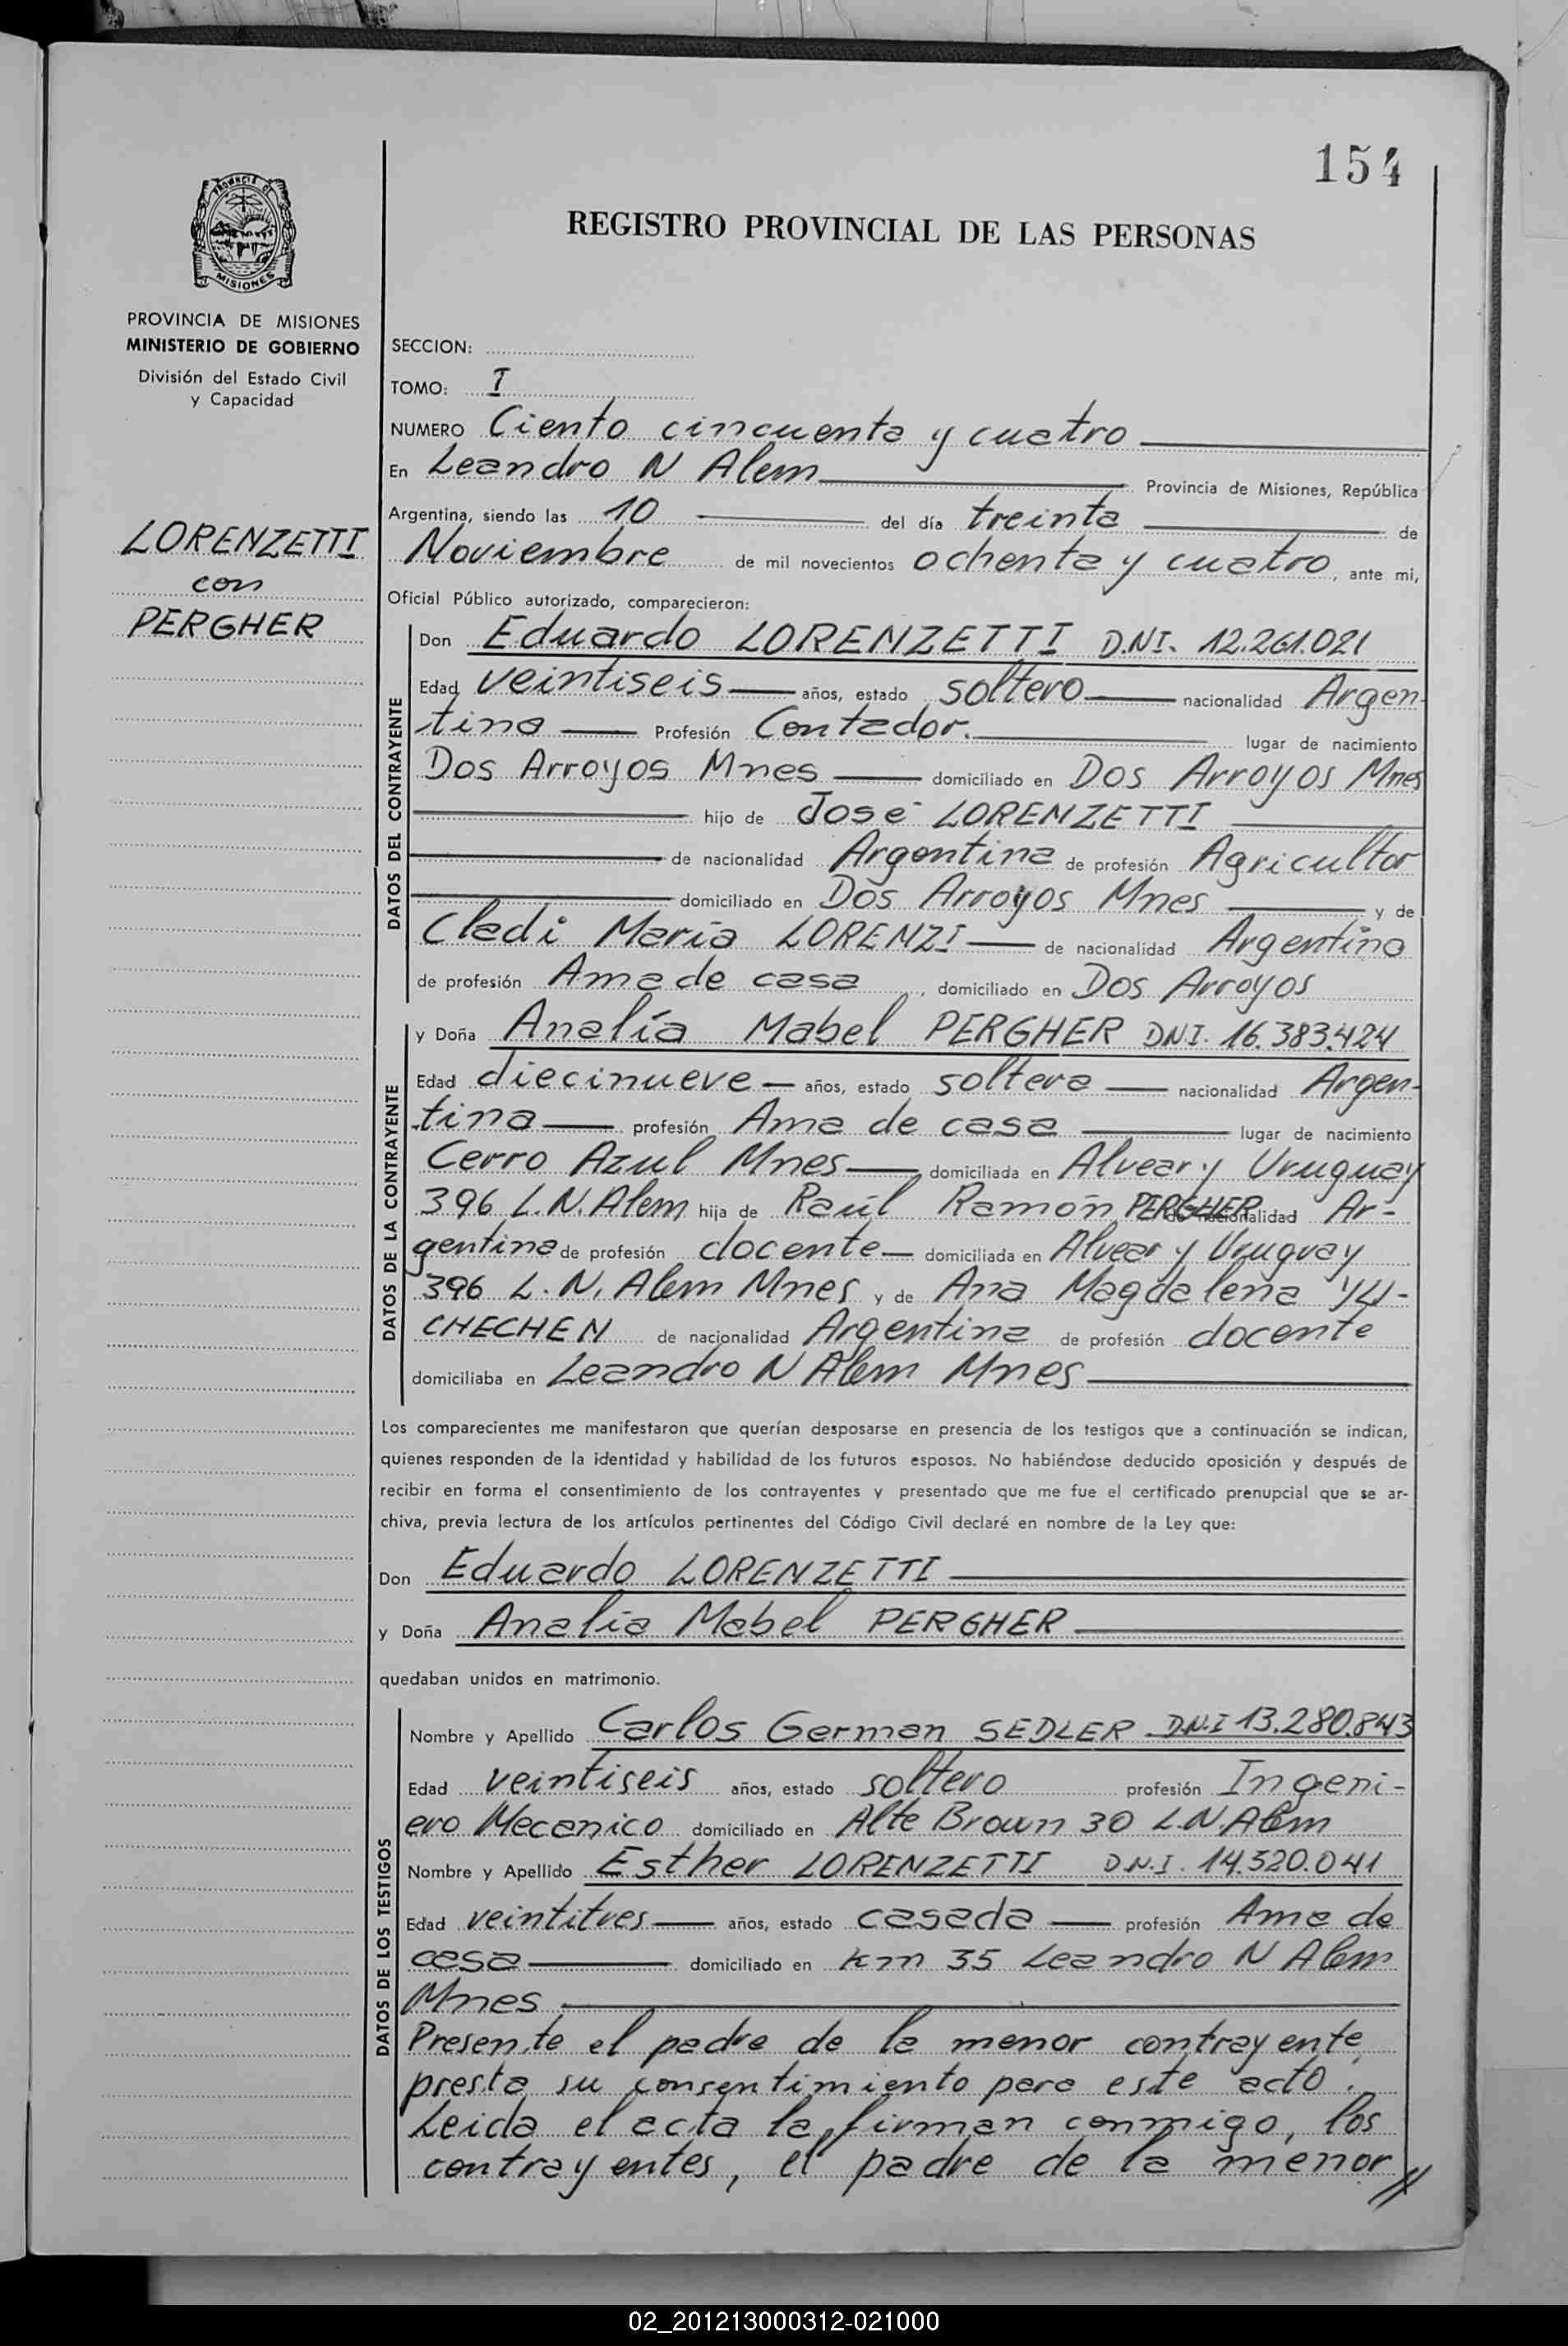 154
REGISTRO PROVINCIAL DE LAS PERSONAS
PROVINCIA DE MISIONES
PROVINCIA DE MISIONES
MINISTERIO DE GOBIERNO
División del Estado Civil
y Capacidad
LORENZETTI
con
PERGHER
SECCION:
TOMO: I
NUMERO Ciento cincuenta y cuatro
En Leandro N Alem Provincia de Misiones, República
Argentina, siendo las 10 del día treinta de
Noviembre de mil novecientos ochenta y cuatro, ante mi,
Oficial Público autorizado, comparecieron:
DATOS DEL CONTRAYENTE
Don Eduardo LORENZETTI D.NI. 12.261.021
Edad veintiseis años, estado soltero nacionalidad Argen-
tina Profesión Contador. lugar de nacimiento
Dos Arroyos Mnes domiciliado en Dos Arroyos Mnes
hijo de José LORENZETTI
de nacionalidad Argentina de profesión Agricultor
domiciliado en Dos Arroyos Mnes y de
Cledi María LORENZI de nacionalidad Argentina
de profesión Ama de casa, domiciliado en Dos Arroyos
DATOS DE LA CONTRAYENTE
y Doña Analía Mabel PERGHER DNI. 16.383.424
Edad diecinueve años, estado soltera nacionalidad Argen-
tina profesión Ama de casa lugar de nacimiento
Cerro Azul Mnes domiciliada en Alvear y Uruguay
396 L.N.Alem hija de Raúl Ramón PERGHER de nacionalidad Ar-
gentina de profesión docente domiciliada en Alvear y Uruguay
396 L.N.Alem Mnes y de Ana Magdalena YU-
CHECHEN de nacionalidad Argentina de profesión docente
domiciliaba en Leandro N Alem Mnes
Los comparecientes me manifestaron que querían desposarse en presencia de los testigos que a continuación se indican,
quienes responden de la identidad y habilidad de los futuros esposos. No habiéndose deducido oposición y después de
recibir en forma el consentimiento de los contrayentes y presentado que me fue el certificado prenupcial que se ar-
chiva, previa lectura de los artículos pertinentes del Código Civil declaré en nombre de la Ley que:
Don Eduardo LORENZETTI
y Doña Analía Mabel PERGHER
quedaban unidos en matrimonio.
DATOS DE LOS TESTIGOS
Nombre y Apellido Carlos German SEDLER D.N.I 13.280.843
Edad veintiseis años, estado soltero profesión Ingeni-
ero Mecanico domiciliado en Alte Brown 30 L.N.Alem
Nombre y Apellido Esther LORENZETTI D.N.I. 14.520.041
Edad veintitres años, estado casada profesión Ama de
casa domiciliado en Km 35 Leandro N Alem
Mnes
Presente el padre de la menor contrayente,
presta su consentimiento para este acto.
Leida el acta la firman conmigo, los
contrayentes, el padre de la menor //
02_201213000312-021000